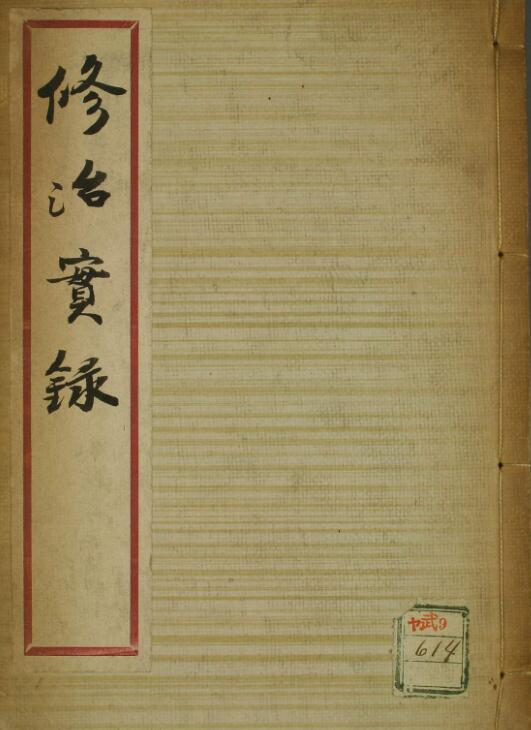 修治實録
ヤ武9
614